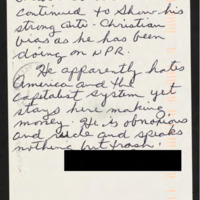 continued to show his
strong anti-Christian
bias as he has been
doing on NPR.
He apparently hates
America and the
capitalist system yet
stays here making
money. He is obnoxious
and rude and speaks
nothing but trash!